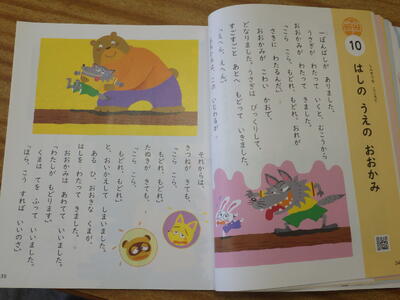 10
はしの うえの おおかみ
一ぽんばしが ありました。
うさぎが わたって いくと、むこうから
おおかみが わたって きました。
「こら こら、もどれ、もどれ。おれが
さきに わたるんだ。」
おおかみが こわい かおで、
どなりました。うさぎは びっくりして、
すごすごと あとへ もどって いきました。
「えへん、えへん。」
それからは、
きつねが きても、
「こら こら、
もどれ、もどれ。」
たぬきが きても、
「こら こら、
もどれ、もどれ。」
と、おいかえして しまいました。
ある ひ、おおきな くまが、
はしを わたって きました。
おおかみは あわてて いいました。
「わたしが もどります。」
くまは てを ふって いいました。
「ほら、こう すれば いいのさ。」